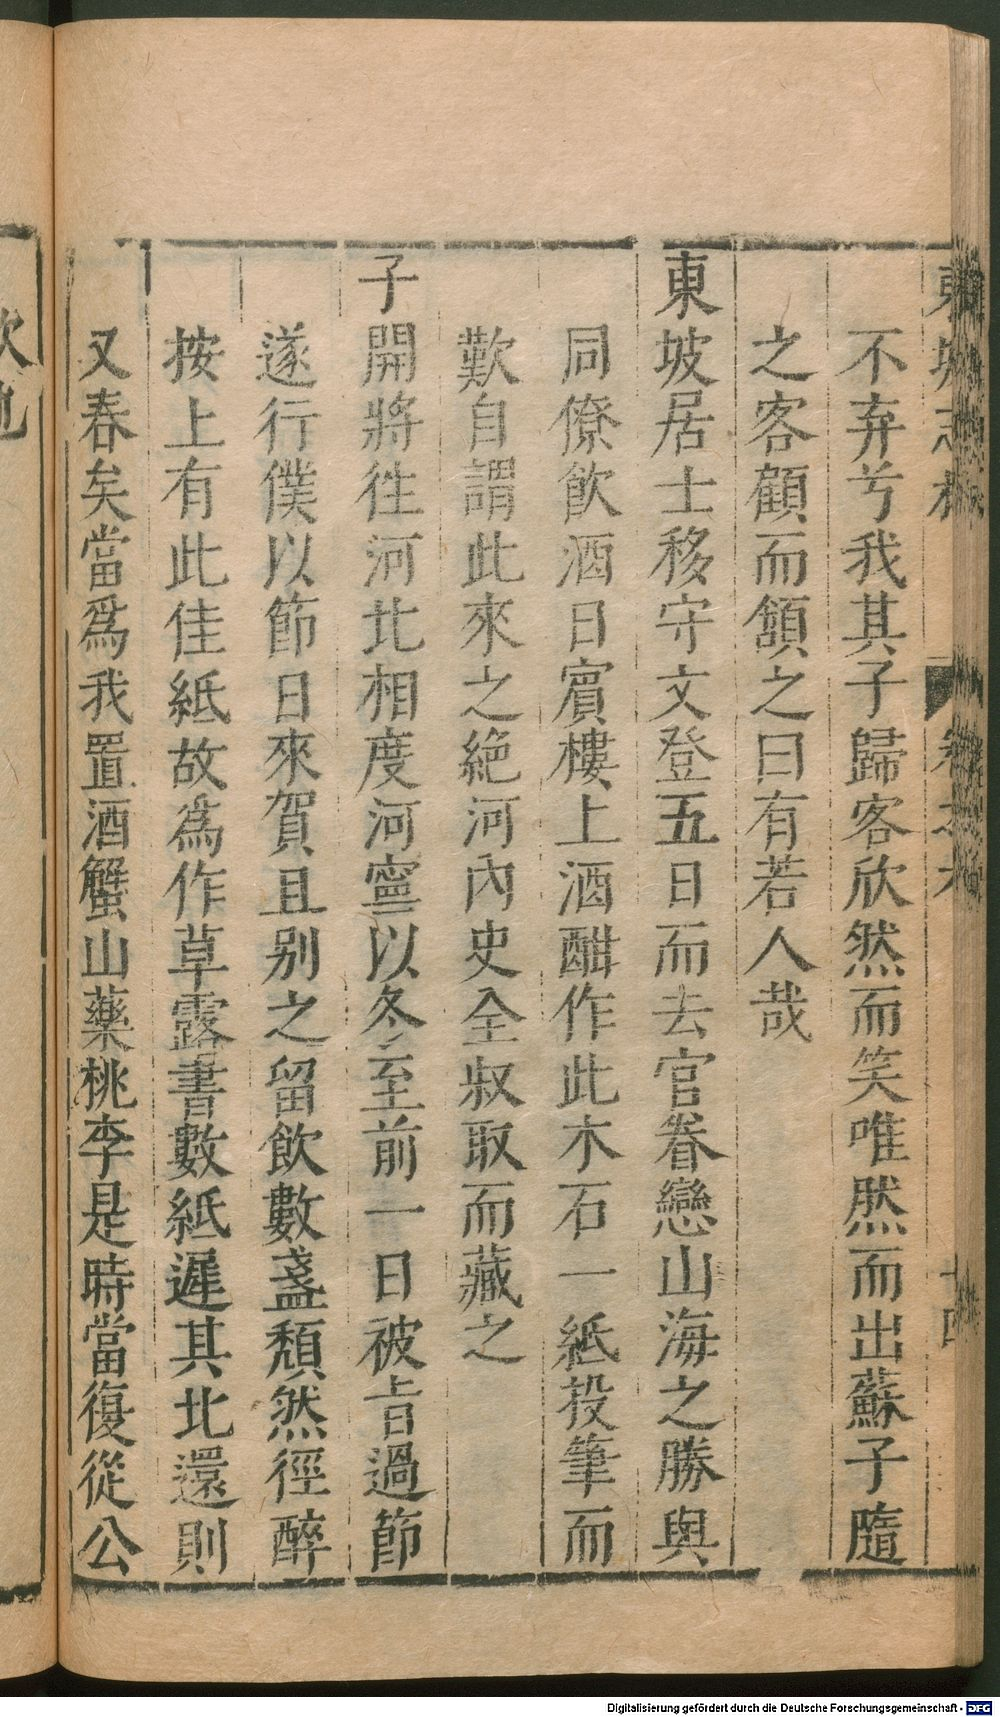 不弃兮我其子歸客欣然而笑唯然而出蘇子隨
之客顧而頷之曰有若人哉
東坡居士移守文登五日而去官眷戀山海之勝與
同僚飲酒日賓樓上酒酣作此木石一紙投筆而
歎自謂此來之絶河內史全叔取而藏之
子開將徃河北相度河寧以冬至前一日被旨過節
遂行僕以節日來賀且别之留飲數盞頹然徑醉
按上有此佳紙故爲作草露書數紙遲其北還則
又春矣當爲我置酒蟹山藥桃李是時當復從公
Digitalisierung gefördert durch die Deutsche Forschungsgemeinschaft - DFG